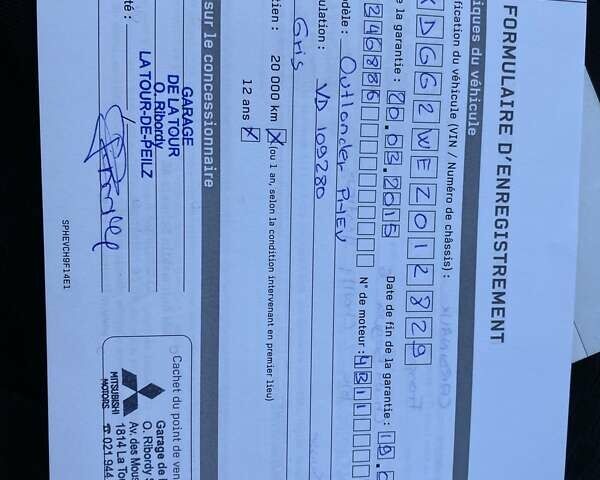 FORMULAIRE D'ENREGISTREMENT
iques du véhicule
ification du véhicule (VIN / Numéro de châssis) :
XDGG2WEZ012829
e la garantie : 20.03.2015 Date de fin de la garantie : 19.
246886 N° de moteur : 4B11
dèle : Outlander PHEV
ulation : VD 109280
Gris
tien : 20 000 km X (ou 1 an, selon la condition intervenant en premier lieu)
12 ans X
sur le concessionnaire
té :
GARAGE
DE LA TOUR
O. Ribordy
LA TOUR-DE-PEILZ
Cachet du point de ven
MITSUBISHI
MOTORS
Garage de
O. Ribordy
Av. des Mous
1814 La To
021 944
SPHEVCH9F14E1